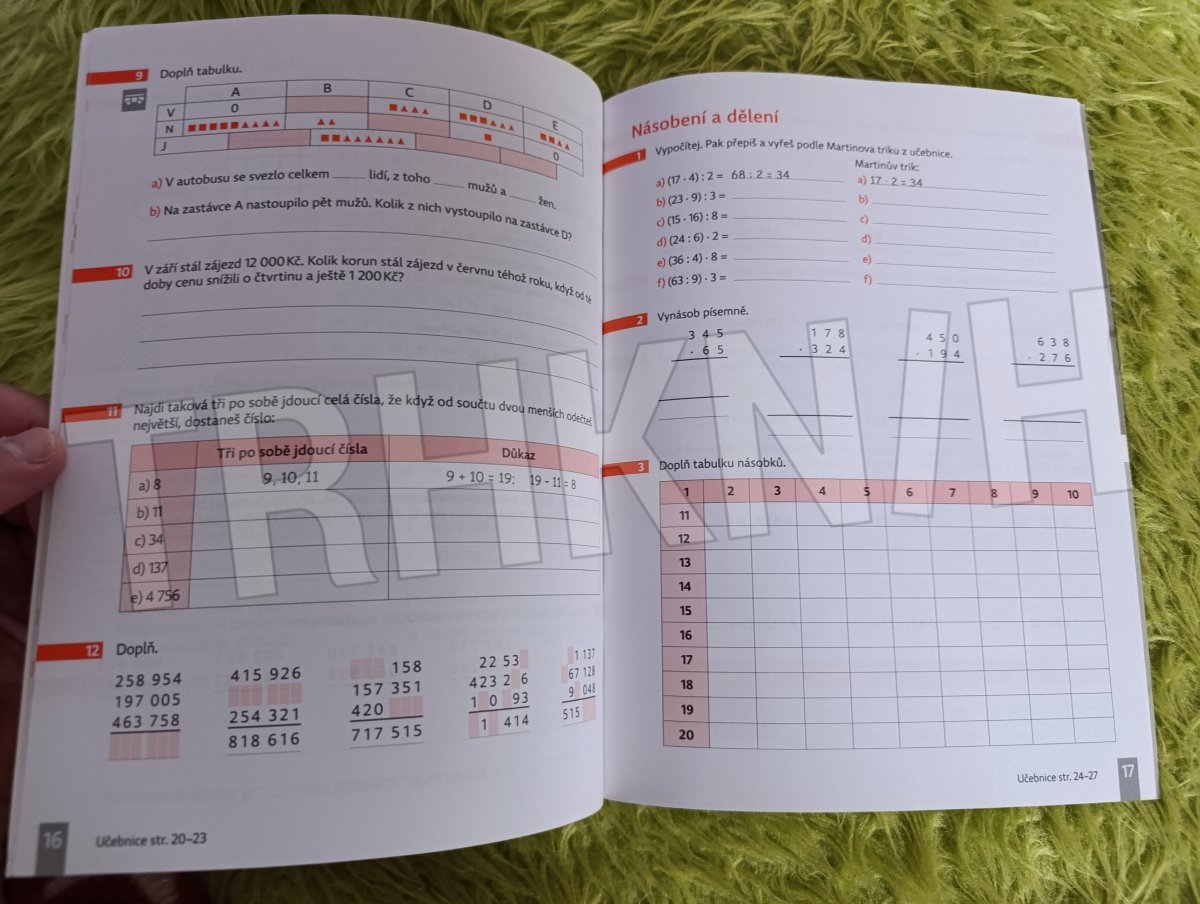 9 Doplň tabulku.
A B C D E
V 0
N
J 0
a) V autobusu se svezlo celkem lidí, z toho mužů a žen.
b) Na zastávce A nastoupilo pět mužů. Kolik z nich vystoupilo na zastávce D?
10 V září stál zájezd 12 000 Kč. Kolik korun stál zájezd v červnu téhož roku, když od té
doby cenu snížili o čtvrtinu a ještě 1 200 Kč?
11 Najdi taková tři po sobě jdoucí celá čísla, že když od součtu dvou menších odečteš
největší, dostaneš číslo:
Tři po sobě jdoucí čísla Důkaz
a) 8 9, 10, 11 9 + 10 = 19; 19 - 11 = 8
b) 11
c) 34
d) 137
e) 4 756
12 Doplň.
258 954 415 926 158 22 53 1 137
197 005 157 351 423 2 6 67 128
463 758 254 321 420 1 0 93 9 048
818 616 717 515 1 414 515
16 Učebnice str. 20–23
Násobení a dělení
1 Vypočítej. Pak přepiš a vyřeš podle Martinova triku z učebnice.
Martinův trik:
a) (17 · 4) : 2 = 68 : 2 = 34 a) 17 · 2 = 34
b) (23 · 9) : 3 = b)
c) (15 · 16) : 8 = c)
d) (24 : 6) · 2 = d)
e) (36 : 4) · 8 = e)
f) (63 : 9) · 3 = f)
2 Vynásob písemně.
3 4 5 1 7 8 4 5 0 6 3 8
· 6 5 · 3 2 4 · 1 9 4 · 2 7 6
3 Doplň tabulku násobků.
1 2 3 4 5 6 7 8 9 10
11
12
13
14
15
16
17
18
19
20
Učebnice str. 24–27 17
TRHKNIH